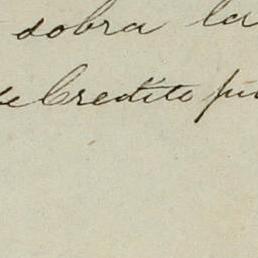 sobra la
de Credito pu